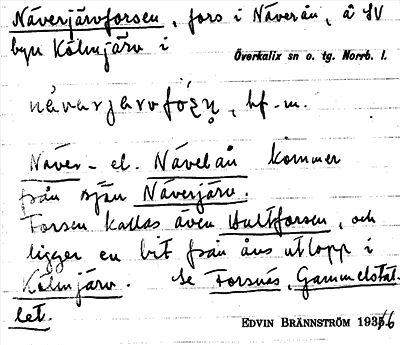 Näverjärvforsen, fors i Näverån, å SV
byn Kölmjärv i
Överkalix sn o. tg. Norrb. l.
bf. m.
Näver- el. Nävelån kommer
från sjön Näverjärv.
Forsen kallas även Hultforsen, och
ligger en bit från åns utlopp i
Kölmjärv. Se Forsnäs, Gammelstal-
let.
EDVIN BRÄNNSTRÖM 1936